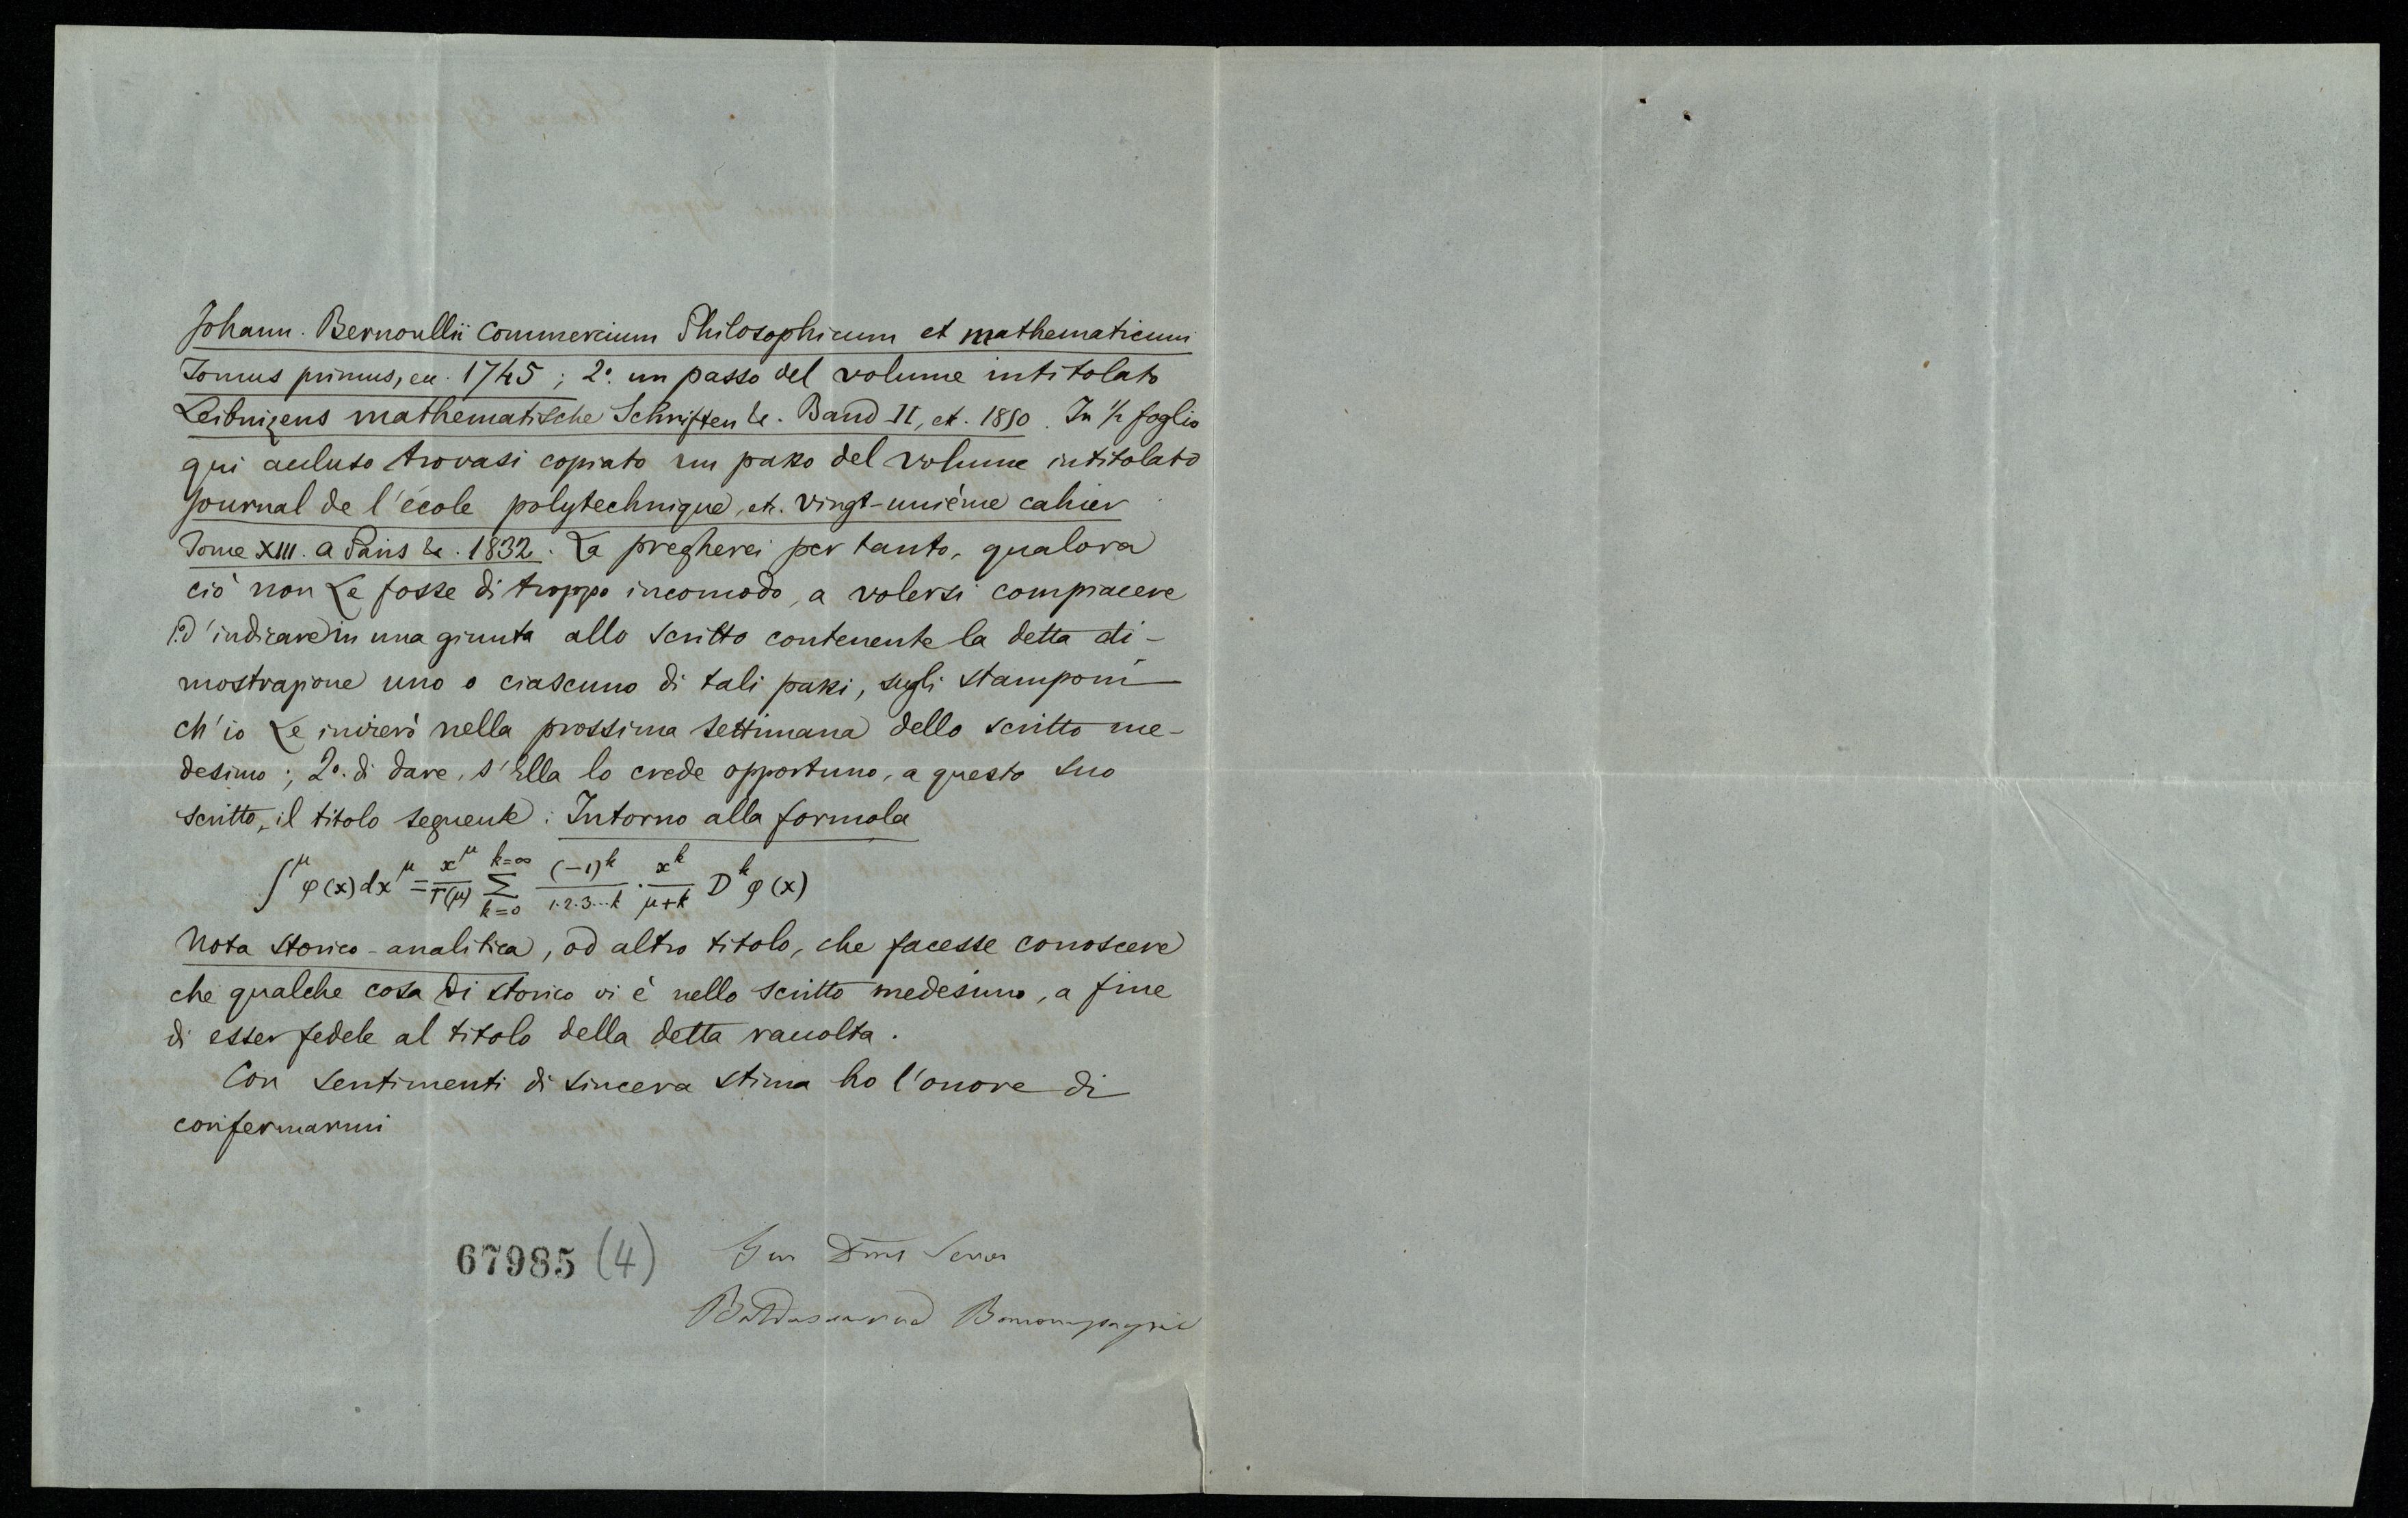 Johann. Bernoullii Commercium Philosophicum et mathematicum
Tomus primus, ec. 1745; 2.º un passo del volume intitolato
Leibnizens mathematische Schriften &. Band II, et. 1850. In ½ foglio
qui accluso trovasi copiato un passo del volume intitolato
Journal de l'école polytechnique, etc. vingt-unième cahier
Tome XIII. a Paris &. 1832. La pregherei per tanto, qualora
ciò non Le fosse di troppo incomodo, a volersi compiacere
1.º d'indicare in una giunta allo scritto contenente la detta di-
mostrazione uno o ciascuno di tali passi, sugli stamponi
ch'io Le invierò nella prossima settimana dello scritto me-
desimo; 2.º di dare, s'Ella lo crede opportuno, a questo suo
scritto, il titolo seguente: Intorno alla formola
∫^μ φ(x)dx^μ = x^μ/Γ(μ) Σ_{k=0}^{k=∞} (-1)^k/1.2.3...k · x^k/μ+k D^k φ(x)
Nota storico-analitica, od altro titolo, che facesse conoscere
che qualche cosa di storico vi è nello scritto medesimo, a fine
di esser fedele al titolo della detta raccolta.
Con sentimenti di sincera stima ho l'onore di
confermarmi
67985 (4)
Baldassarre Boncompagni